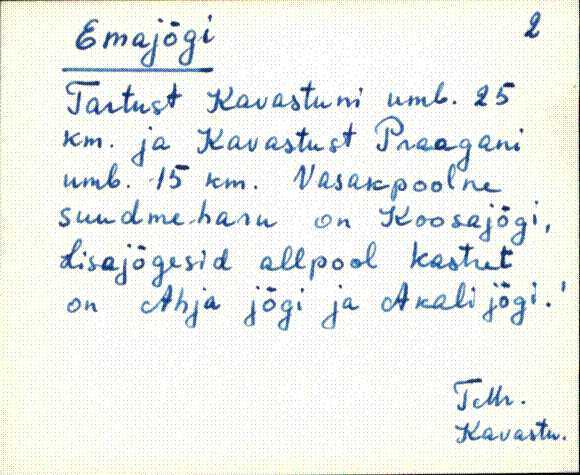 Emajõgi 2
Tartust Kavastuni umb. 25
km. ja Kavastust Praagani
umb. 15 km. Vasakpoolne
suudmeharu on Koosajõgi,
Lisajõgesid allpool Kastret
on Ahja jõgi ja Akalijõgi.
TMr.
Kavastu.